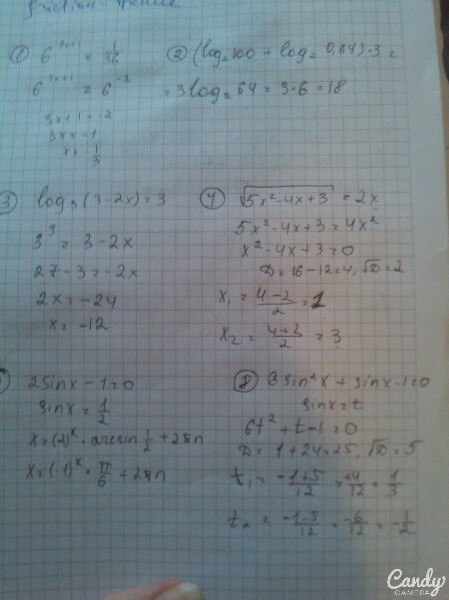 ① 6^{3x+1} = 1/36
6^{3x+1} = 6^{-2}
3x+1 = -2
3x = -1
② (log₂100 + log₂ 0,64)·3 =
= 3log₂ 64 = 3·6 = 18
3 log₃(3-2x) = 3
3³ = 3-2x
27-3 = -2x
2x = -24
x = -12
√(5x²-4x+3) = 2x
5x²-4x+3 = 4x²
x²-4x+3 = 0
D = 16-12 = 4, √D = 2
x₁ = (4-2)/2 = 1
x₂ = (4+2)/2 = 3
2sinx-1=0
sinx = 1/2
x = (-1)^k · arcsin 1/2 + 2πn
x = (-1)^k · π/6 + 2πn
⑧ 6 sin²x + sinx-1=0
sinx = t
6t² + t-1=0
D = 1+24=25, √D = 5
t₁ = (-1+5)/12 = +4/12 = 1/3
t₂ = (-1-5)/12 = -6/12 = -1/2
Candy
CAMERA